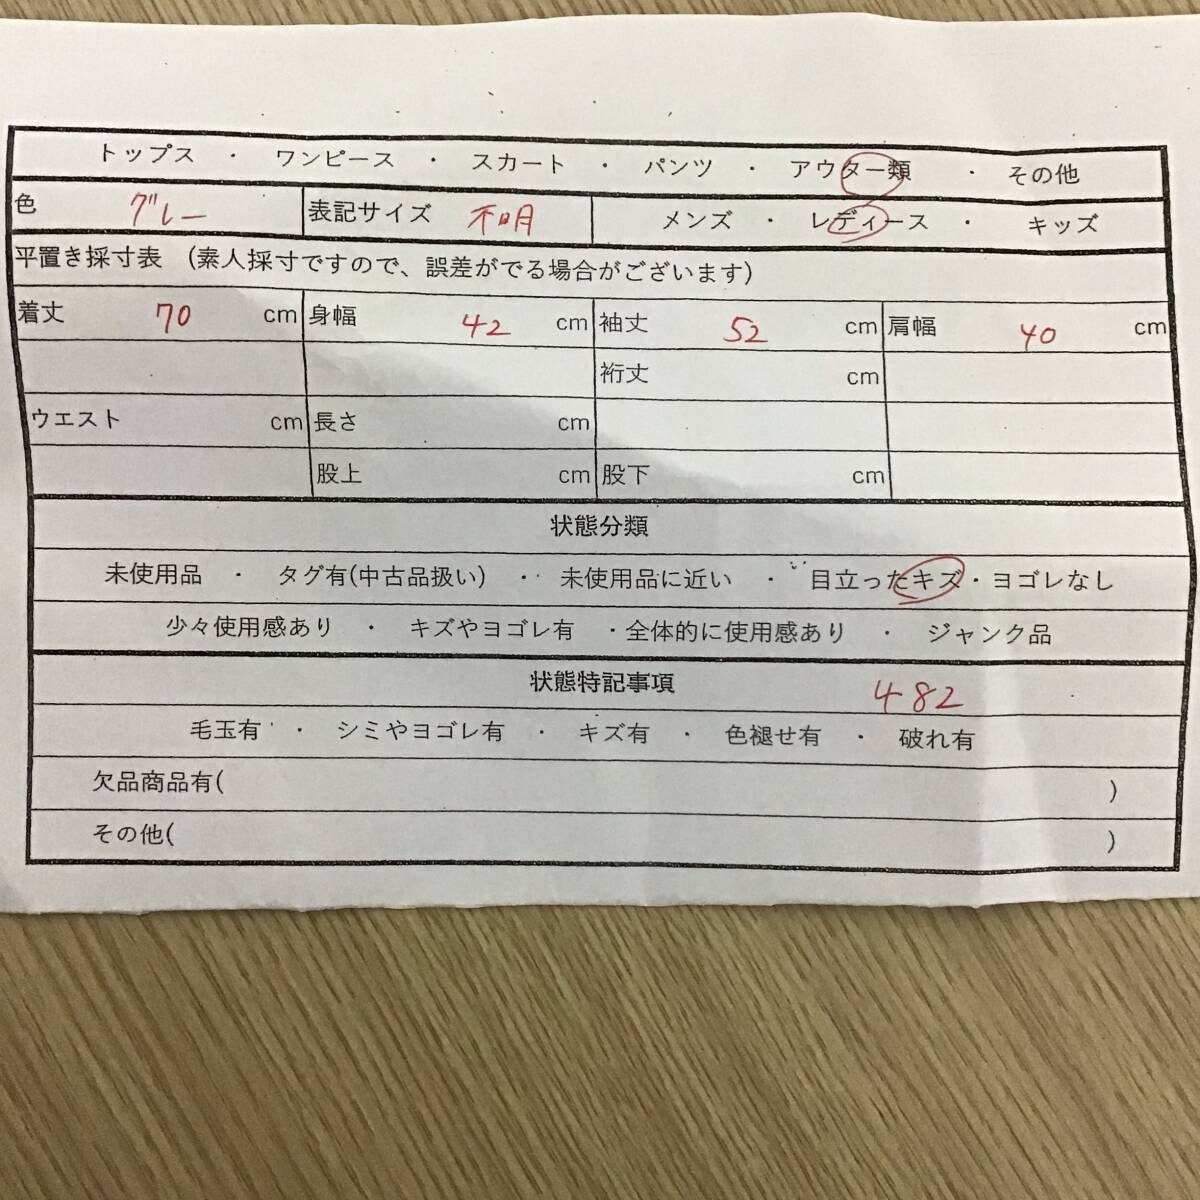 トップス ・ ワンピース ・ スカート ・ パンツ ・ アウター類 ・ その他
色 グレー 表記サイズ 不明 メンズ ・ レディース ・ キッズ
平置き採寸表 （素人採寸ですので、誤差がでる場合がございます）
着丈 70 cm 身幅 42 cm 袖丈 52 cm 肩幅 40 cm
裄丈 cm
ウエスト cm 長さ cm
股上 cm 股下 cm
状態分類
未使用品 ・ タグ有(中古品扱い) ・ 未使用品に近い ・ 目立ったキズ・ヨゴレなし
少々使用感あり ・ キズやヨゴレ有 ・全体的に使用感あり ・ ジャンク品
状態特記事項 482
毛玉有 ・ シミやヨゴレ有 ・ キズ有 ・ 色褪せ有 ・ 破れ有
欠品商品有( )
その他( )